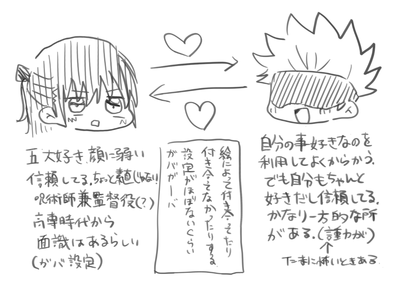 五大好き、顔に弱い
信頼してる。ちょっと
呪術師兼監督役(?)
高専時代から
面識はあるらしい
(ガバ設定)
絵によって付き合ってたり
付き合ってなかったりする
設定がほぼないくらい
ガバガーバ
自分の事好きなのを
利用してよくからかう。
でも自分もちゃんと
好きだし信頼してる。
かなり一方的な所
がある。(誰力が)
たまに怖いときある